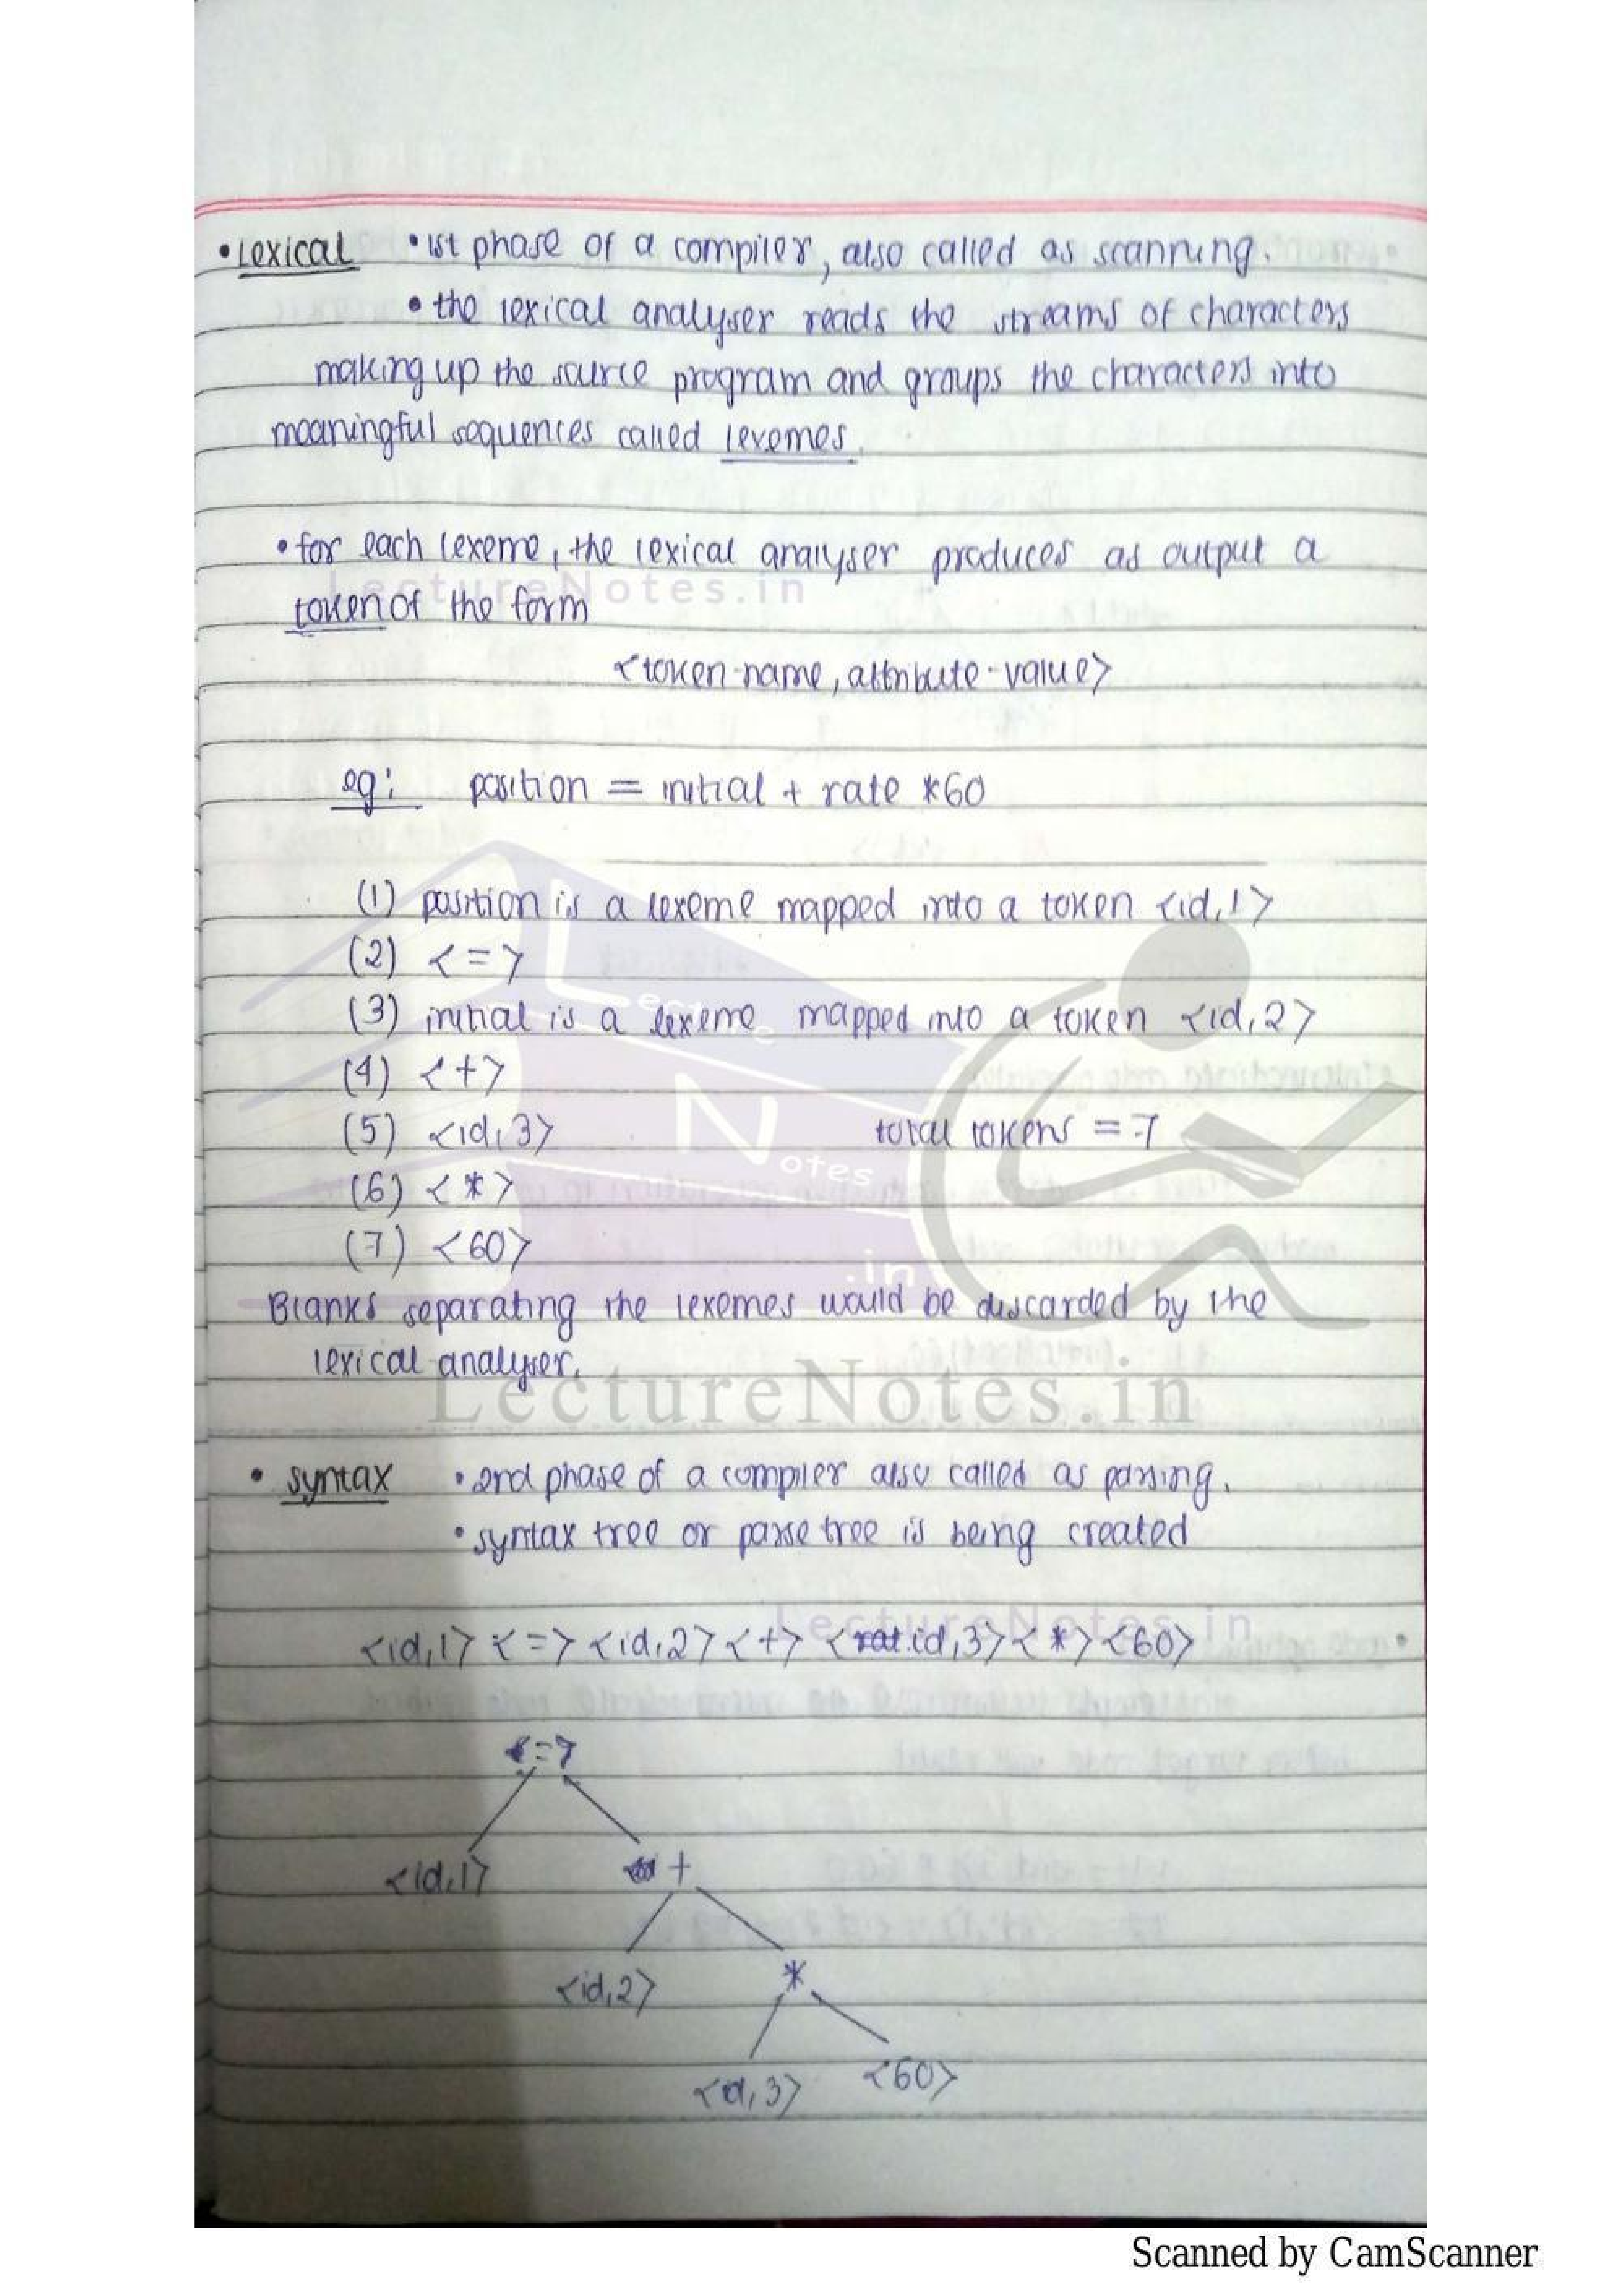 • Lexical • 1st phase of a compiler, also called as scanning.
• the lexical analyser reads the streams of characters
making up the source program and groups the characters into
meaningful sequences called lexemes.
• for each lexeme, the lexical analyser produces as output a
LectureNotes.in
token of the form
<token-name, attribute-value>
eg: position = initial + rate *60
(1) position is a lexeme mapped into a token <id,1>
(2) <=>
(3) initial is a lexeme mapped into a token <id,2>
(4) <+>
(5) <id,3> total tokens = 7
(6) <*>
(7) <60>
Lecture
Notes
.in
Blanks separating the lexemes would be discarded by the
lexical analyser.
LectureNotes.in
• syntax • 2nd phase of a compiler also called as parsing.
• syntax tree or parse tree is being created
LectureNotes.in
<id,1> <=> <id,2> <+> <id,3> <*> <60>
<=>
<id,1> +
<id,2> *
<id,3> <60>
Scanned by CamScanner